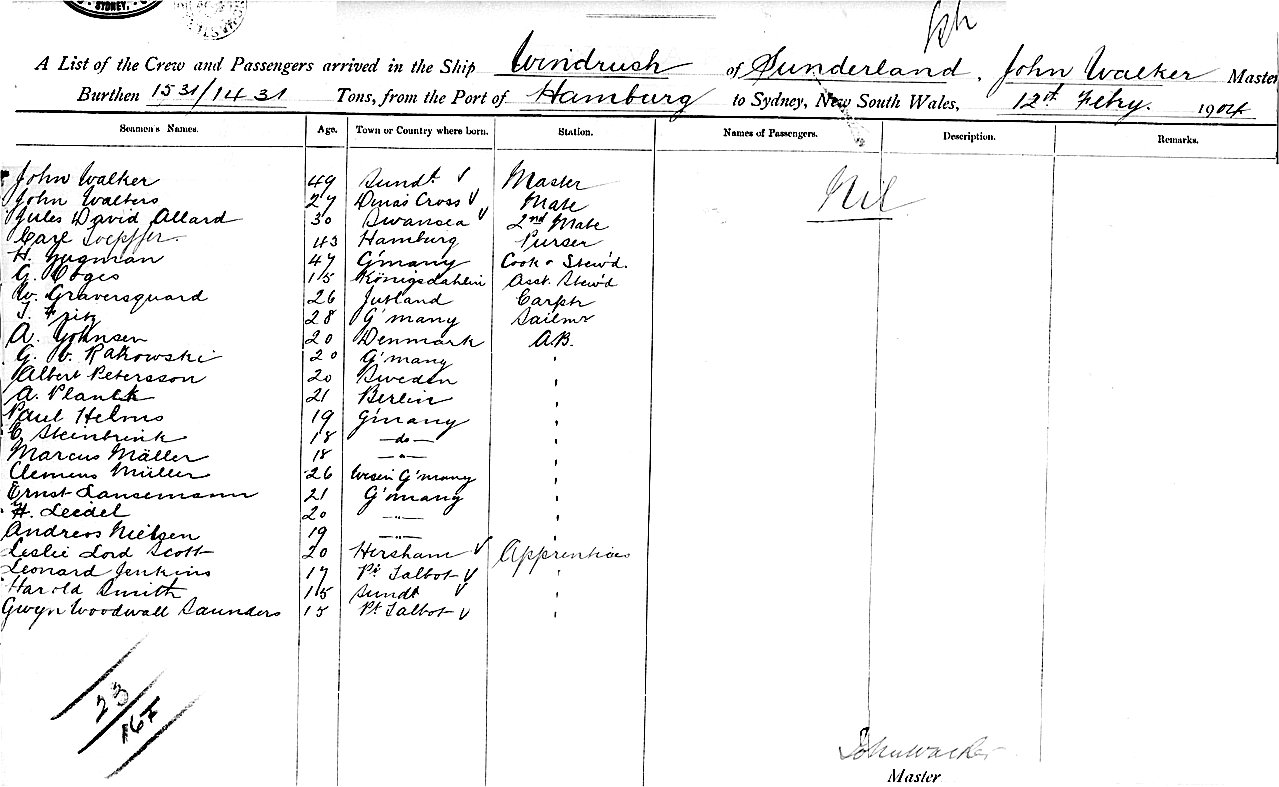 SYDNEY.
A List of the Crew and Passengers arrived in the Ship Windrush of Sunderland, John Walker Master
Burthen 1531/1431 Tons, from the Port of Hamburg to Sydney, New South Wales, 12th Feby. 1904
Seamen's Names. Age. Town or Country where born. Station. Names of Passengers. Description. Remarks.
John Walker 49 Sundd √ Master Nil
John Walters 27 Dinas Cross √ Mate
Jules David Allard 30 Swansea √ 2nd Mate
Carl Toepffer 43 Hamburg Purser
H. 47 G'many Cook & Stew'd.
G. 15 Königsdahlin Asst. Stew'd
W. Graversguard 26 Jutland Carptr
T. Fritz 28 G'many Sailmr
A. Johnsen 20 Denmark A.B.
G. v. Rakowski 20 G'many "
Albert Petersson 20 Sweden "
A. Planck 21 Berlin "
Paul Helms 19 G'many "
E Steinbrink 18 —do— "
Marcus Mäller 18 —"— "
Clemens Müller 26 G'many "
Ernst Lansemann 21 G'many "
H. Leidel 20 —"— "
Andreas Nielsen 19 —"— "
Leslie Lord Scott 20 Hersham √ Apprentices
Leonard Jenkins 17 Pt Talbot √ "
Harold Smith 15 Sundd √ "
Gwyn Woodwall Saunders 15 Pt Talbot √ "
23/167
John Walker
Master